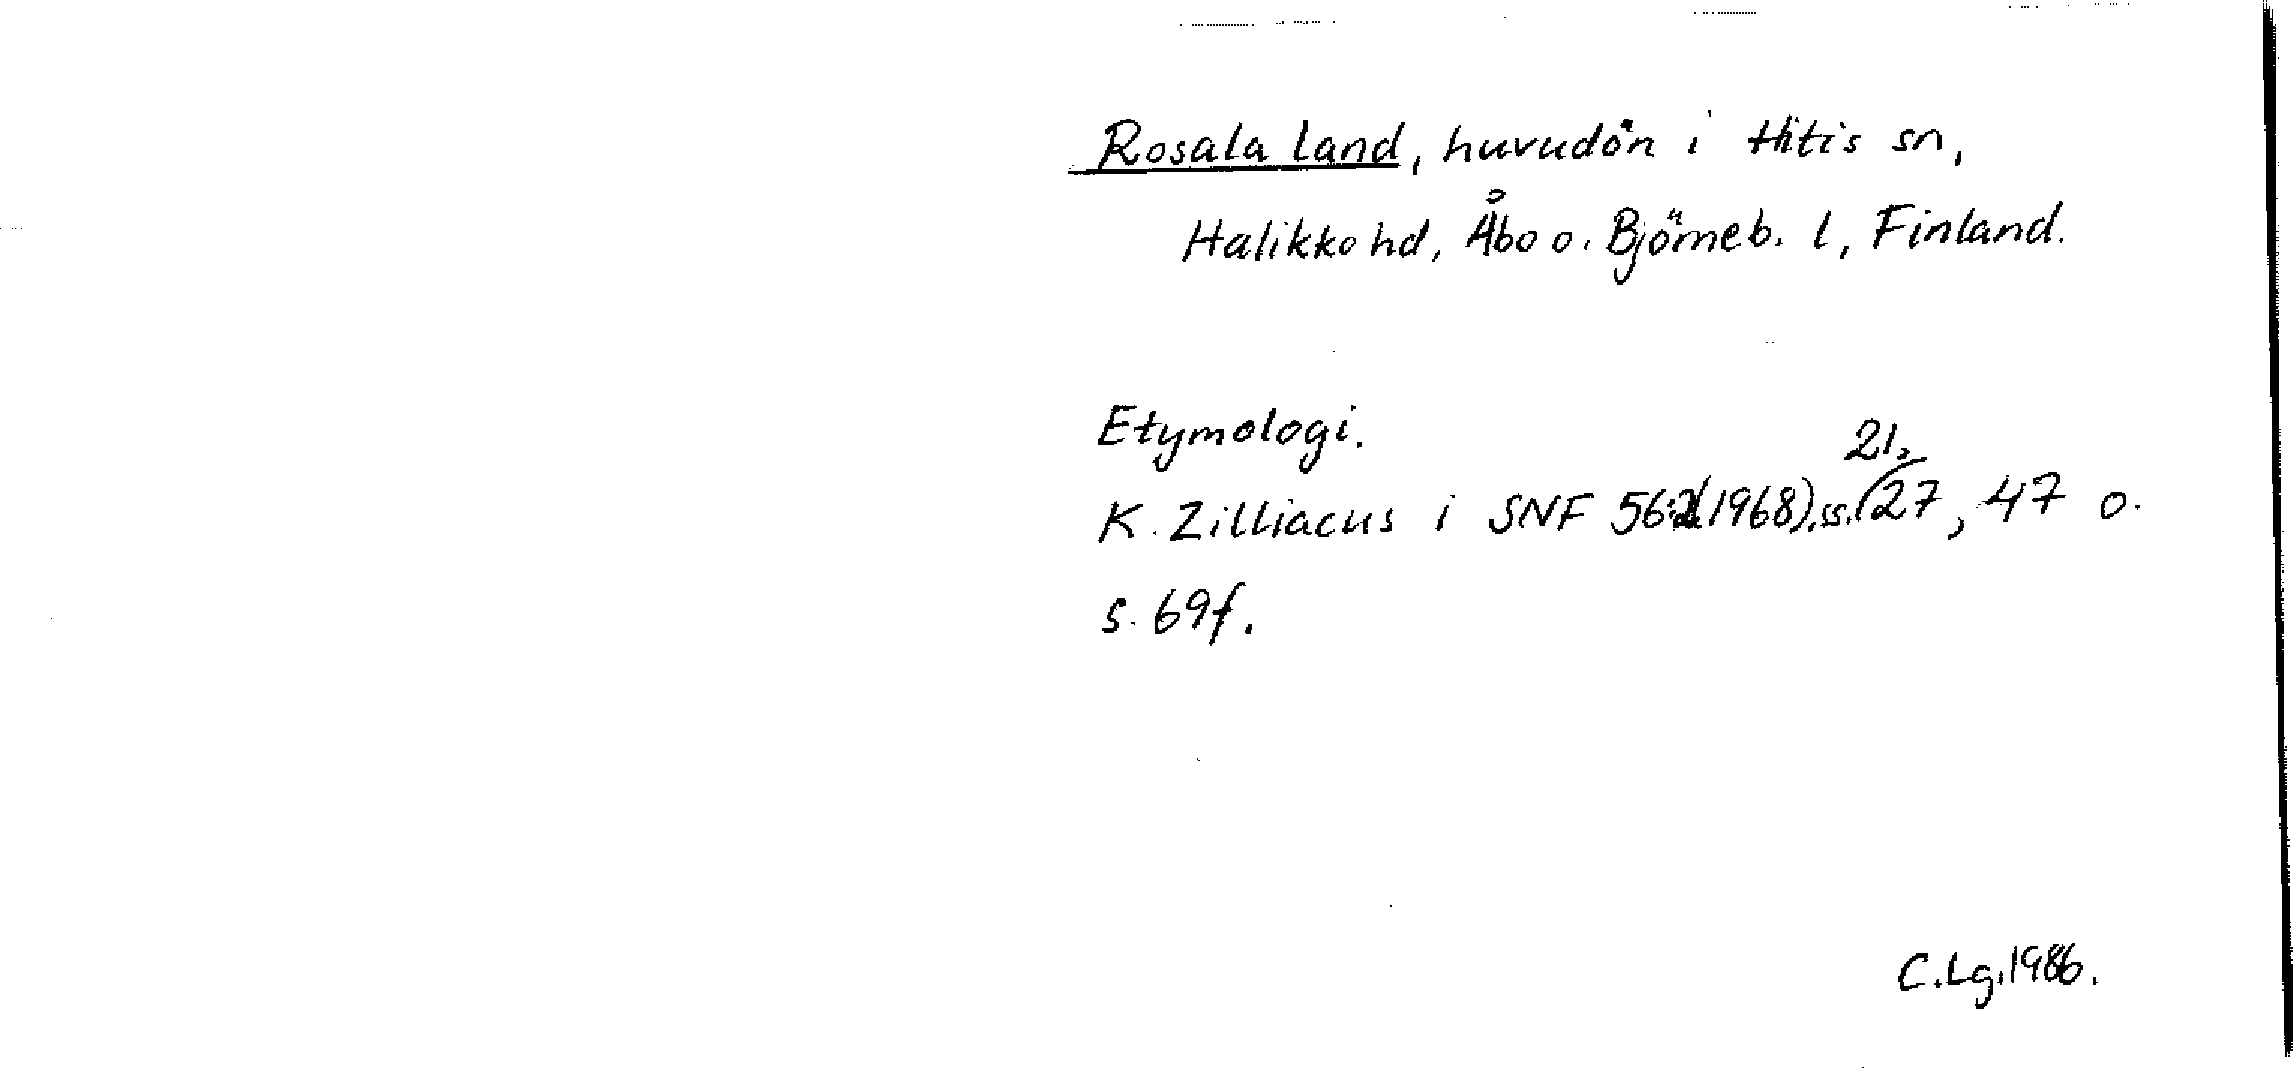 Rosala land, huvudön i Hitis sn,
Halikko hd, Åbo o. Björneb. l, Finland.
Etymologi.
K. Zilliacus i SNF 56:2(1968), ss. 21, 27, 47 o.
s. 69f.
C.Lg.1986.